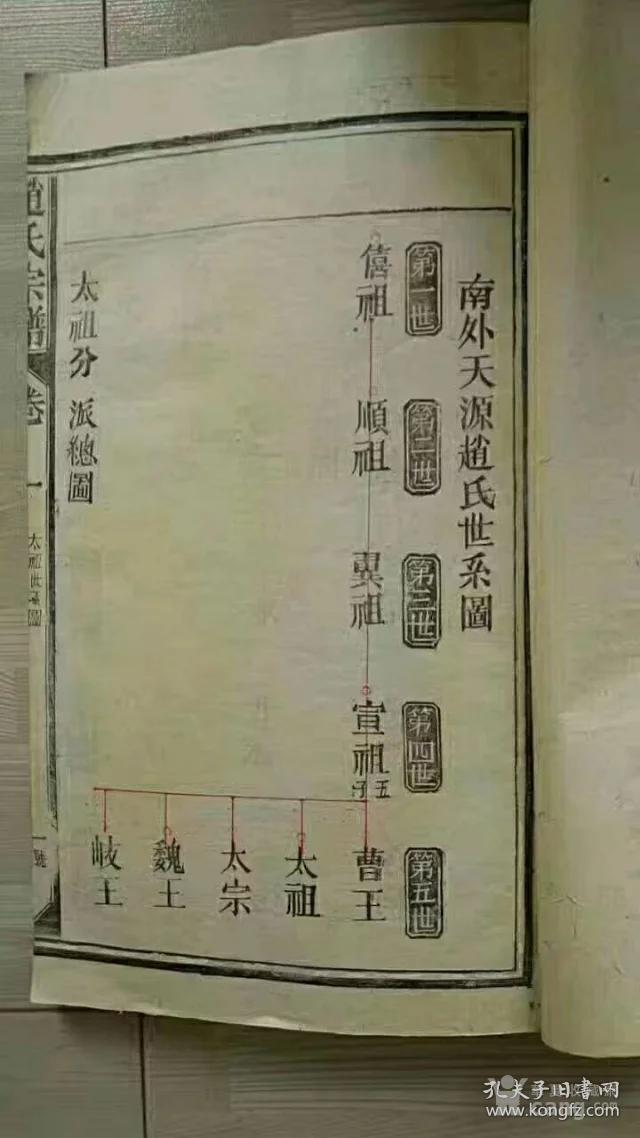 南外天源趙氏世系圖
第一世
第二世
第三世
第四世
第五世
僖祖
順祖
翼祖
宣祖
五子
曹王
太祖
太宗
魏王
岐王
太祖分派總圖
趙氏宗譜
卷一
太祖世系圖
號
孔夫子旧書网
www.kongfz.com